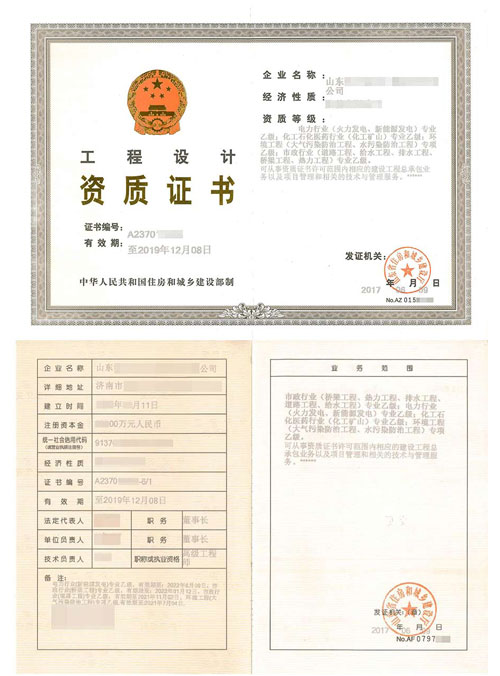 工程设计
资质证书
证书编号: A2370
有效期: 至2019年12月08日
中华人民共和国住房和城乡建设部制
企业名称: 山东
公司
经济性质:
资质等级:
电力行业（火力发电、新能源发电）专业
乙级；化工石化医药行业（化工矿山）专业乙级；环
境工程（大气污染防治工程、水污染防治工程）专项
乙级；市政行业（道路工程、给水工程、排水工程、
桥梁工程、热力工程）专业乙级。
可从事资质证书许可范围内相应的建设工程总承包业
务以及项目管理和相关的技术与管理服务。******
发证机关:
山东省住房和城乡建设厅
2017 年 月 日
No.AZ 015
企业名称 山东 公司
详细地址 济南市
建立时间 年 月11日
注册资本金 00万元人民币
统一社会信用代码
(或营业执照注册号) 9137
经济性质
证书编号 A2370 -6/1
有效期 至2019年12月08日
法定代表人 职务 董事长
单位负责人 职务 董事长
技术负责人 职称或执业资格 高级工程师
备注:
业务范围
市政行业（桥梁工程、热力工程、排水工程、
道路工程、给水工程）专业乙级；电力行业
（火力发电、新能源发电）专业乙级；化工石
化医药行业（化工矿山）专业乙级；环境工程
（大气污染防治工程、水污染防治工程）专项
乙级。
可从事资质证书许可范围内相应的建设工程总
承包业务以及项目管理和相关的技术与管理服
务。******
发证机关: (章)
山东省住房和城乡建设厅
2017 年 月 日
No.AF 0797